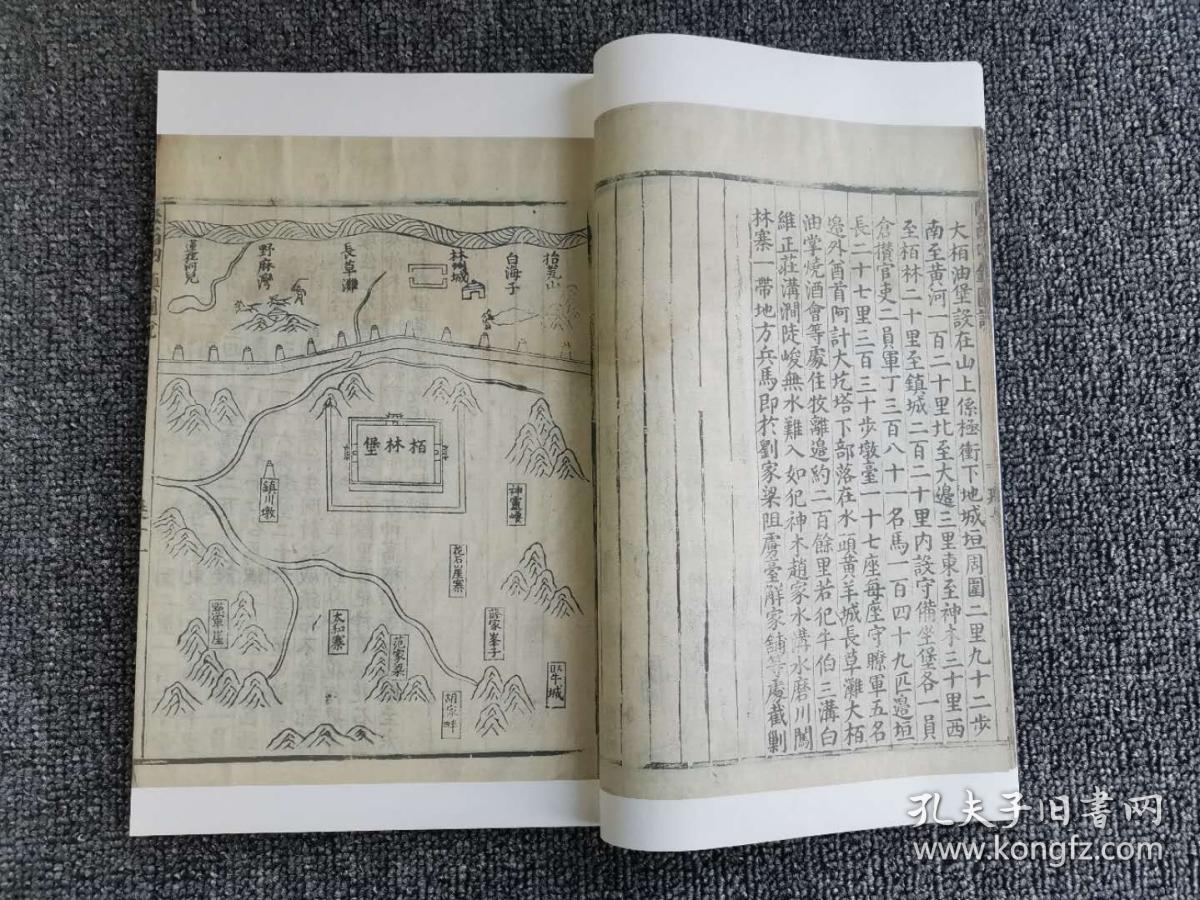 大栢油堡設在山上係極衝下地城垣周圍二里九十二步
南至黃河一百二十里北至大邊三里東至神木三十里西
至栢林二十里至鎮城二百二十里內設守備坐堡各一員
倉攢官吏二員軍丁三百八十一名馬一百四十九匹邊垣
長二十七里三百三十步墩臺一十七座每座守瞭軍五名
邊外酋首阿計大圪塔下部落在水頭黃羊城長草灘大栢
油掌燒酒會等處住牧離邊約二百餘里若犯牛伯三溝白
維正莊溝澗陡峻無水難入如犯神木趙家水溝水磨川闖
林寨一帶地方兵馬即於劉家梁阻虜臺解家舖等處截剿
抬荒山
白海子
林州城
長草灘
野麻灣
栢林堡
鎮川墩
神靈峰
花石崖寨
薛家峯子
臥牛城
范家梁
太和寨
胡家畔
孔夫子旧书网
www.kongfz.com